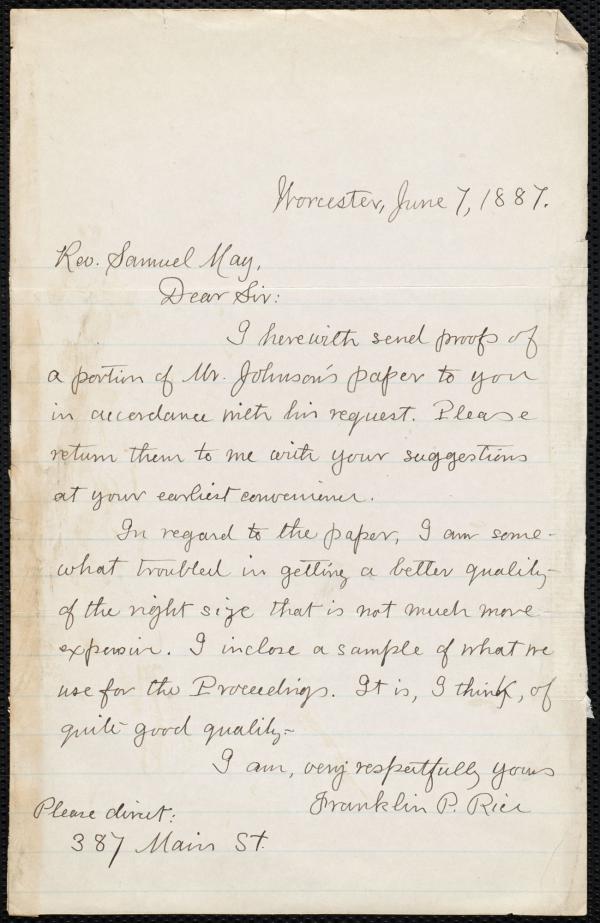 Worcester, June 7, 1887.
Rev. Samuel May,
Dear Sir:
I herewith send proofs of
a portion of Mr. Johnson's paper to you
in accordance with his request. Please
return them to me with your suggestions
at your earliest convenience.
In regard to the paper, I am some-
what troubled in getting a better quality
of the right size that is not much more
expensive. I inclose a sample of what we
use for the Proceedings. It is, I think, of
quite good quality-
I am, very respectfully yours
Franklin P. Rice
Please direct:
387 Main St.